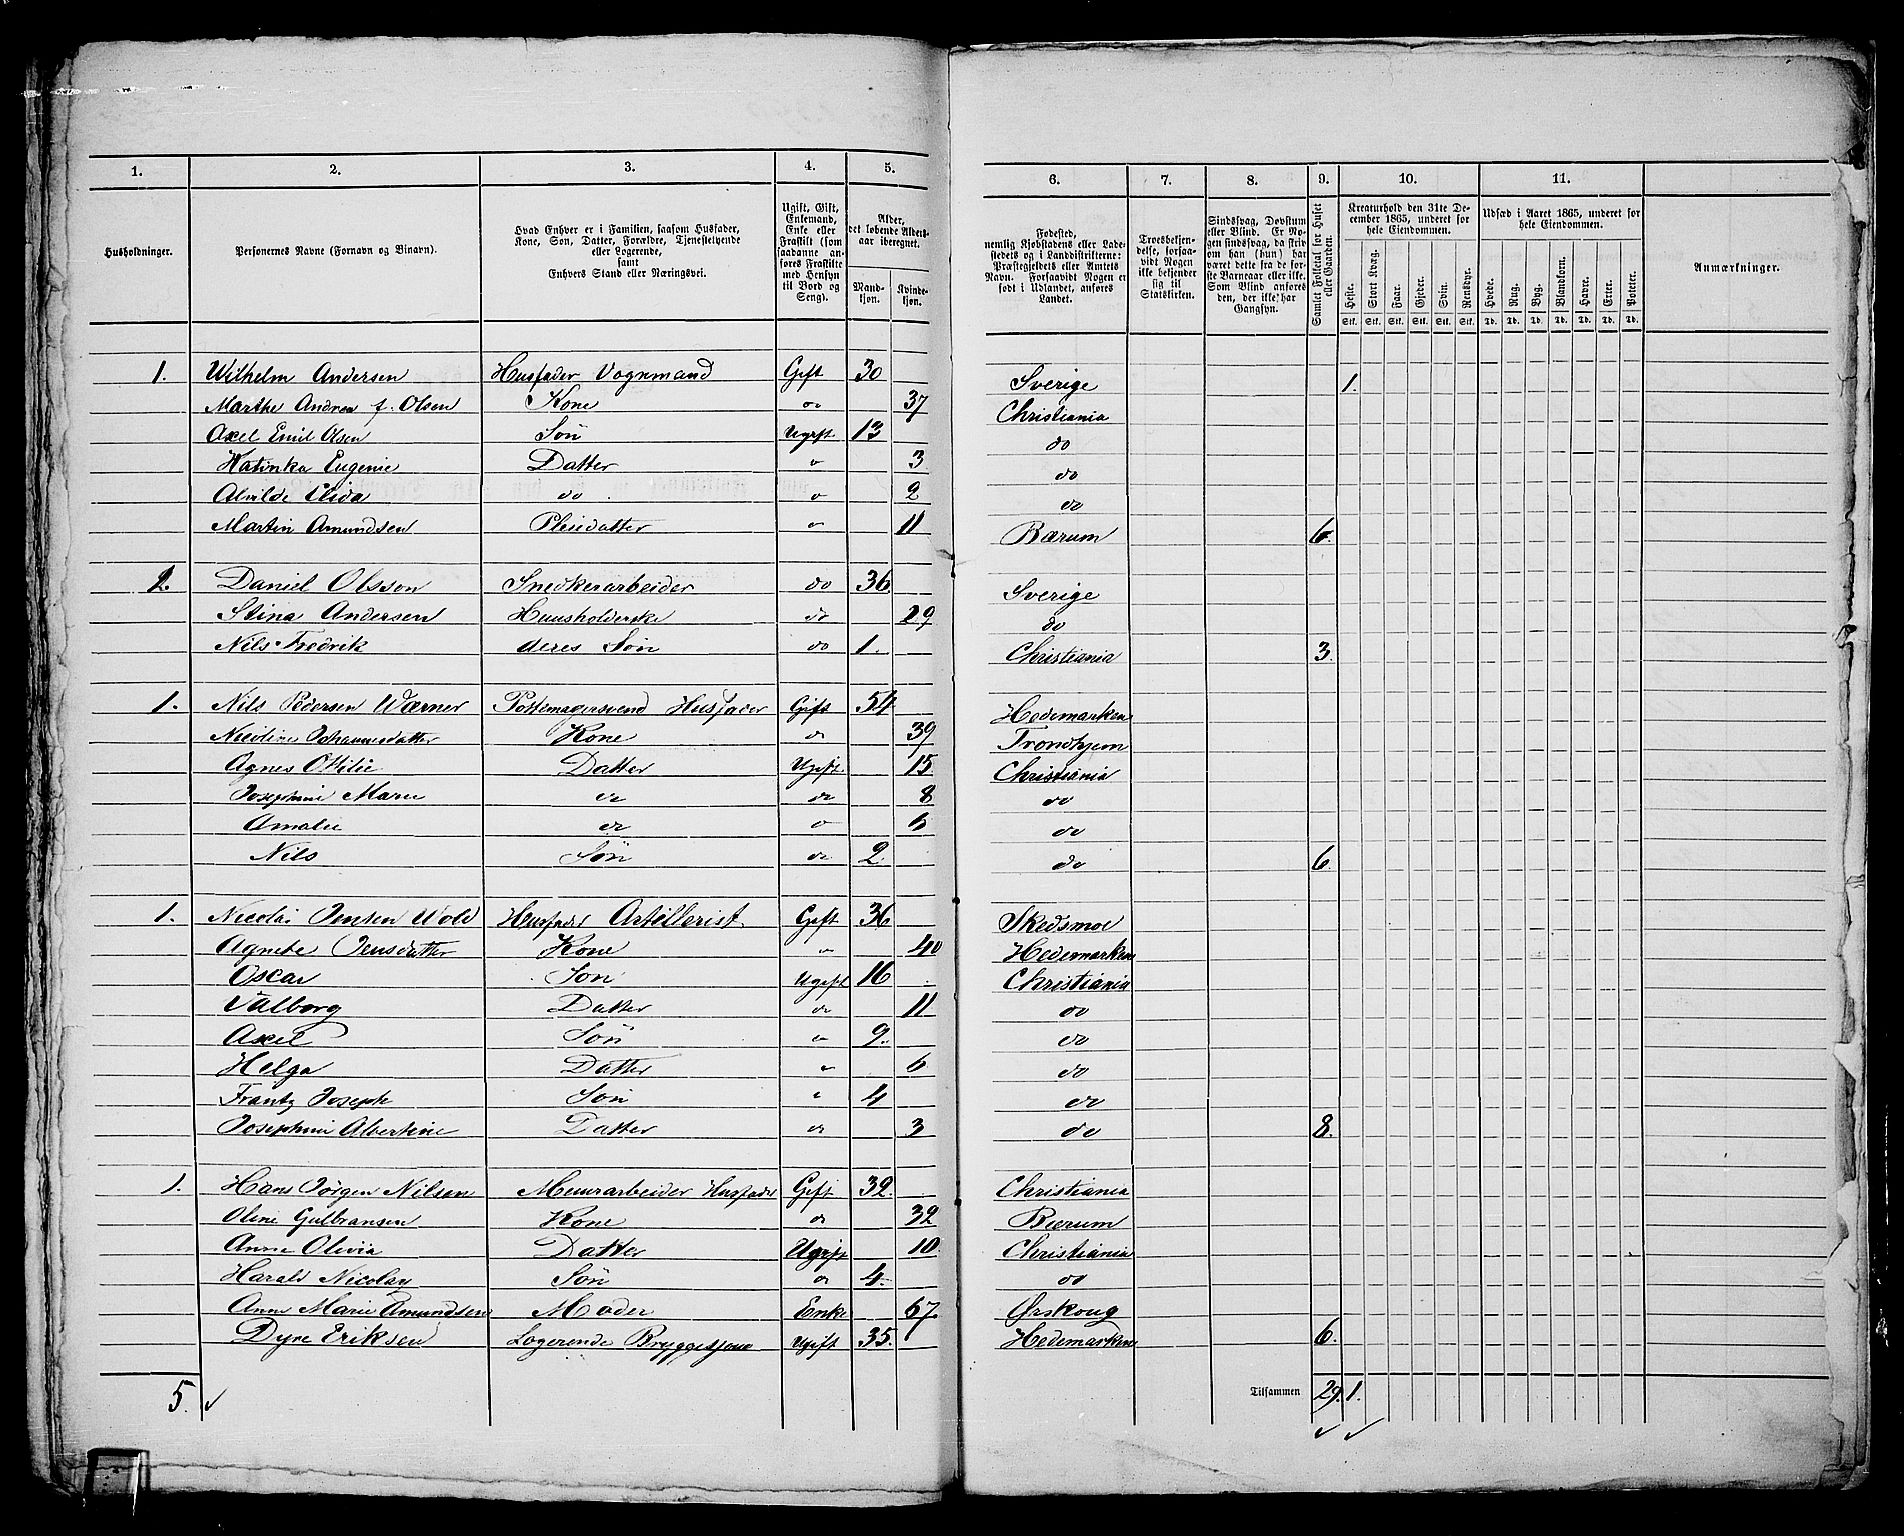 1. 2. 3. 4. 5. 6. 7. 8. 9. 10. 11.
Husholdninger.
Personernes Navne (Fornavn og Binavn).
Hvad Enhver er i Familien, saasom Husfader,
Kone, Søn, Datter, Forældre, Tjenestetyende
eller Logerende,
samt
Enhvers Stand eller Næringsvei.
Ugift, Gift,
Enkemand,
Enke eller
Fraskilt (som
saadanne an-
føres Fraskilte
med Hensyn
til Bord og
Seng).
Alder,
det løbende Alders-
aar iberegnet.
Mand-
kjøn.
Kvinde-
kjøn.
Fødested,
nemlig Kjøbstadens eller Lade-
stedets og i Landdistrikterne:
Præstegjeldets eller Amtets
Navn. Forsaavidt Nogen er
født i Udlandet, anføres
Landet.
Troesbekjen-
delse, forsaa-
vidt Nogen
ikke bekjender
sig til
Statskirken.
Sindssvag, Døvstum
eller Blind. Er No-
gen sindssvag, da skriv
om han (hun) har
været dette fra de før-
ste Barneaar eller ikke.
Som Blind anføres
den, der ikke har
Gangsyn.
Samlet Folketal for Huset
eller Gaarden.
Kreaturhold den 31te De-
cember 1865, underet for
hele Eiendommen.
Heste. Stort Kvæg. Faar. Gjeder. Svin. Rensdyr.
Stk. Stk. Stk. Stk. Stk. Stk.
Udsæd i Aaret 1865, underet for
hele Eiendommen.
Hvede. Rug. Byg. Blandkorn. Havre. Erter. Poteter.
Td. Td. Td. Td. Td. Td. Td.
Anmærkninger.
1. Wilhelm Andersen Husfader Vognmand Gift 30 Sverige 1.
Marthe Andrea f. Olsen Kone do 37 Christiania
Axel Emil Olsen Søn Ugift 13 do
Katinka Eugenie Datter 3 do
Alvilde Elida do 2 do
Martin Amundsen Pleiedatter 11 Bærum 6.
2. Daniel Olsson Snedkerarbeider do 36 Sverige
Stina Andersen Huusholderske do 29 do
Nils Fredrik deres Søn do 1. Christiania 3.
1. Nils Pedersen Wærner Pottemagersvend Husfader Gift 54 Hedemarken
Nicoline Johannesdatter Kone do 39 Trondhjem
Agnes Ottilie Datter Ugift 15 Christiania
Josephine Marie do do 8 do
Amalie do do
Nils Søn do 2 do 6.
1. Nicolai Jensen Wold Husfader Artillerist Gift 36 Skedsmoe
Agnete Jensdatter Kone 40 Hedemarken
Oscar Søn Ugift 16 Christiania
Valborg Datter do 11 do
Axel Søn 9. do
Helga Datter 6 do
Frantz Joseph Søn 4 do
Josephine Albertine Datter do 3 do 8.
1. Hans Jørgen Nilsen Muurarbeider Husfader Gift 32. Christiania
Oline Gulbransen Kone do 32 Bærum
Anne Olivia Datter Ugift 10. Christiania
Harald Nicolay Søn do 4. do
Anne Marie Amundsen Moder Enke 67. Ørskoug
Dyre Eriksen Logerende Bryggesjouer Ugift 35. Hedemarken 6.
5. ✓ Tilsammen 29. 1.
✓ ✓